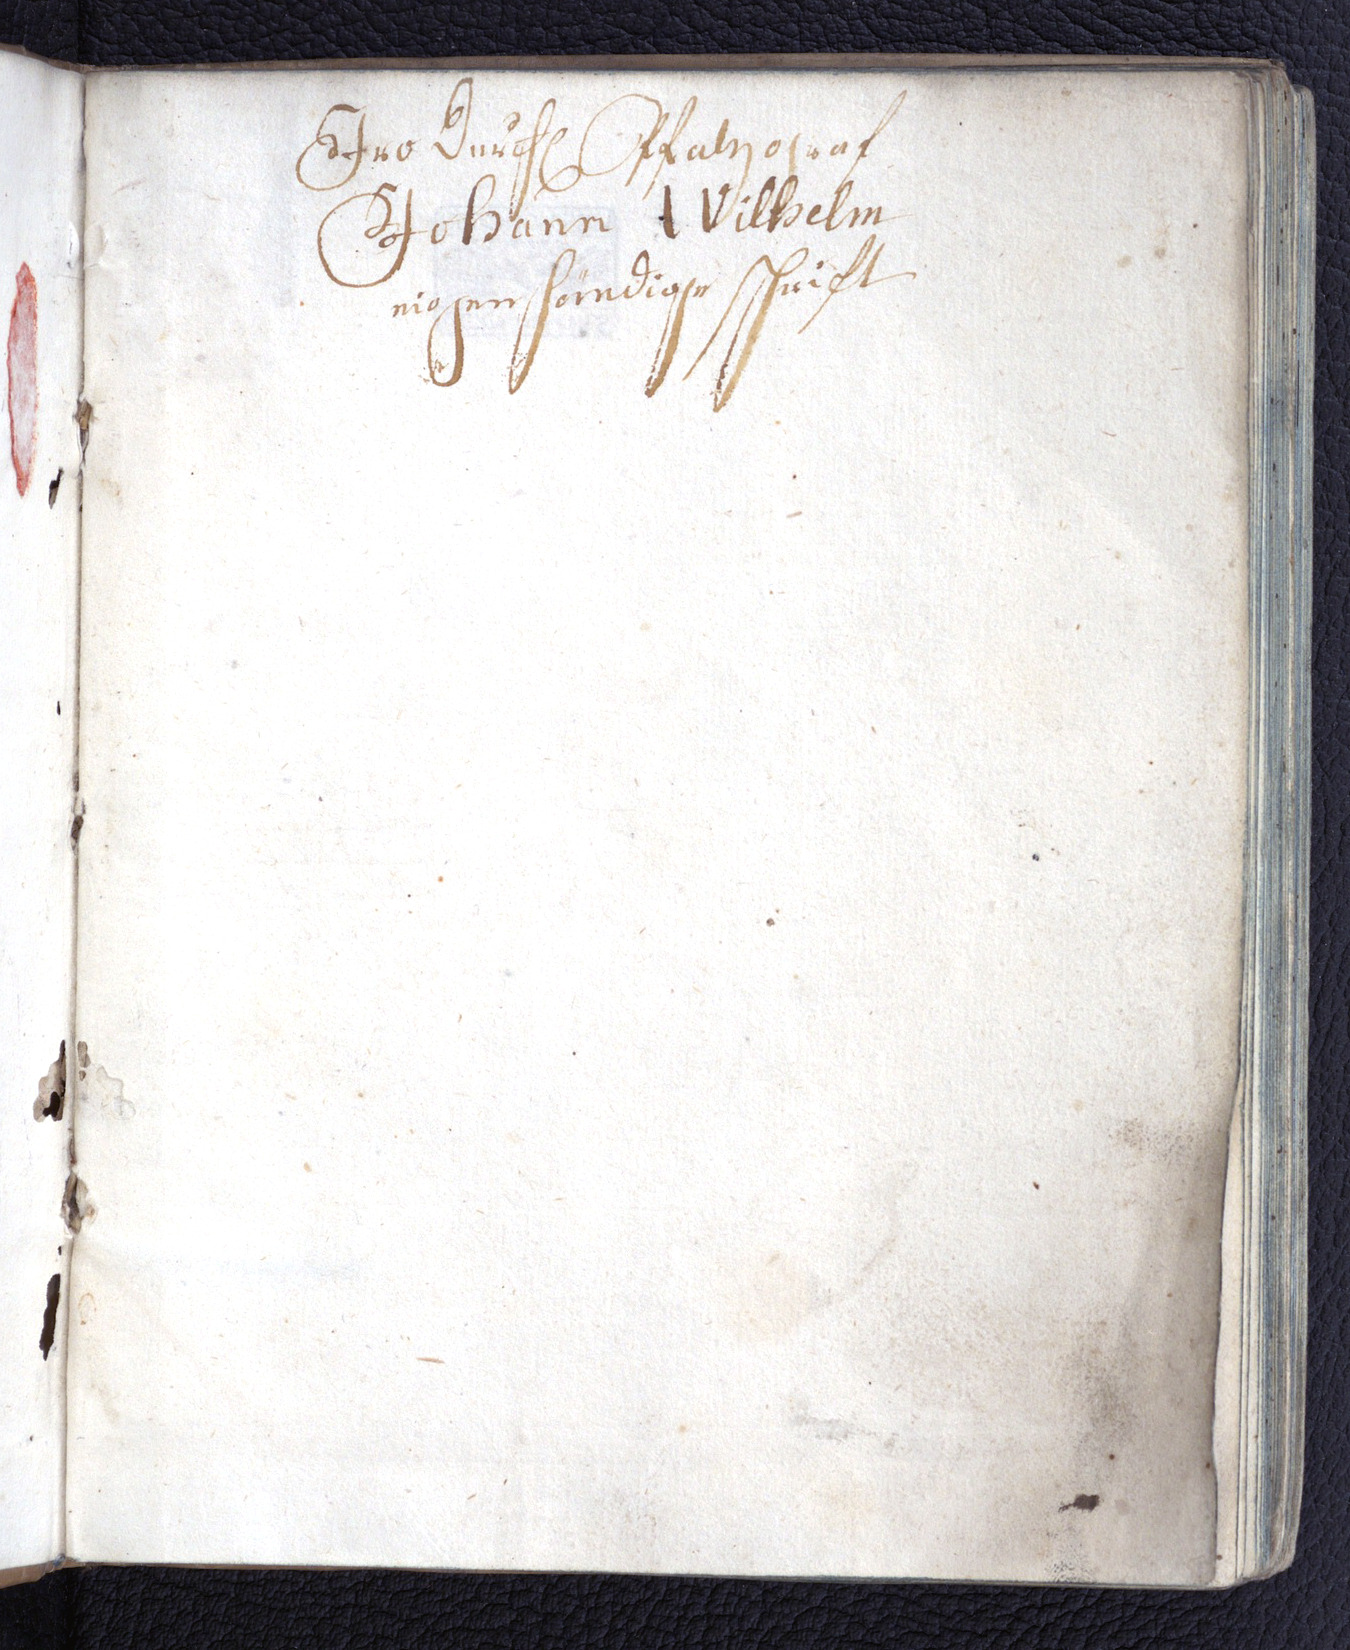 Iro Durchl Pfaltzgraf
Johann Wilhelm
eigenhändige schrift